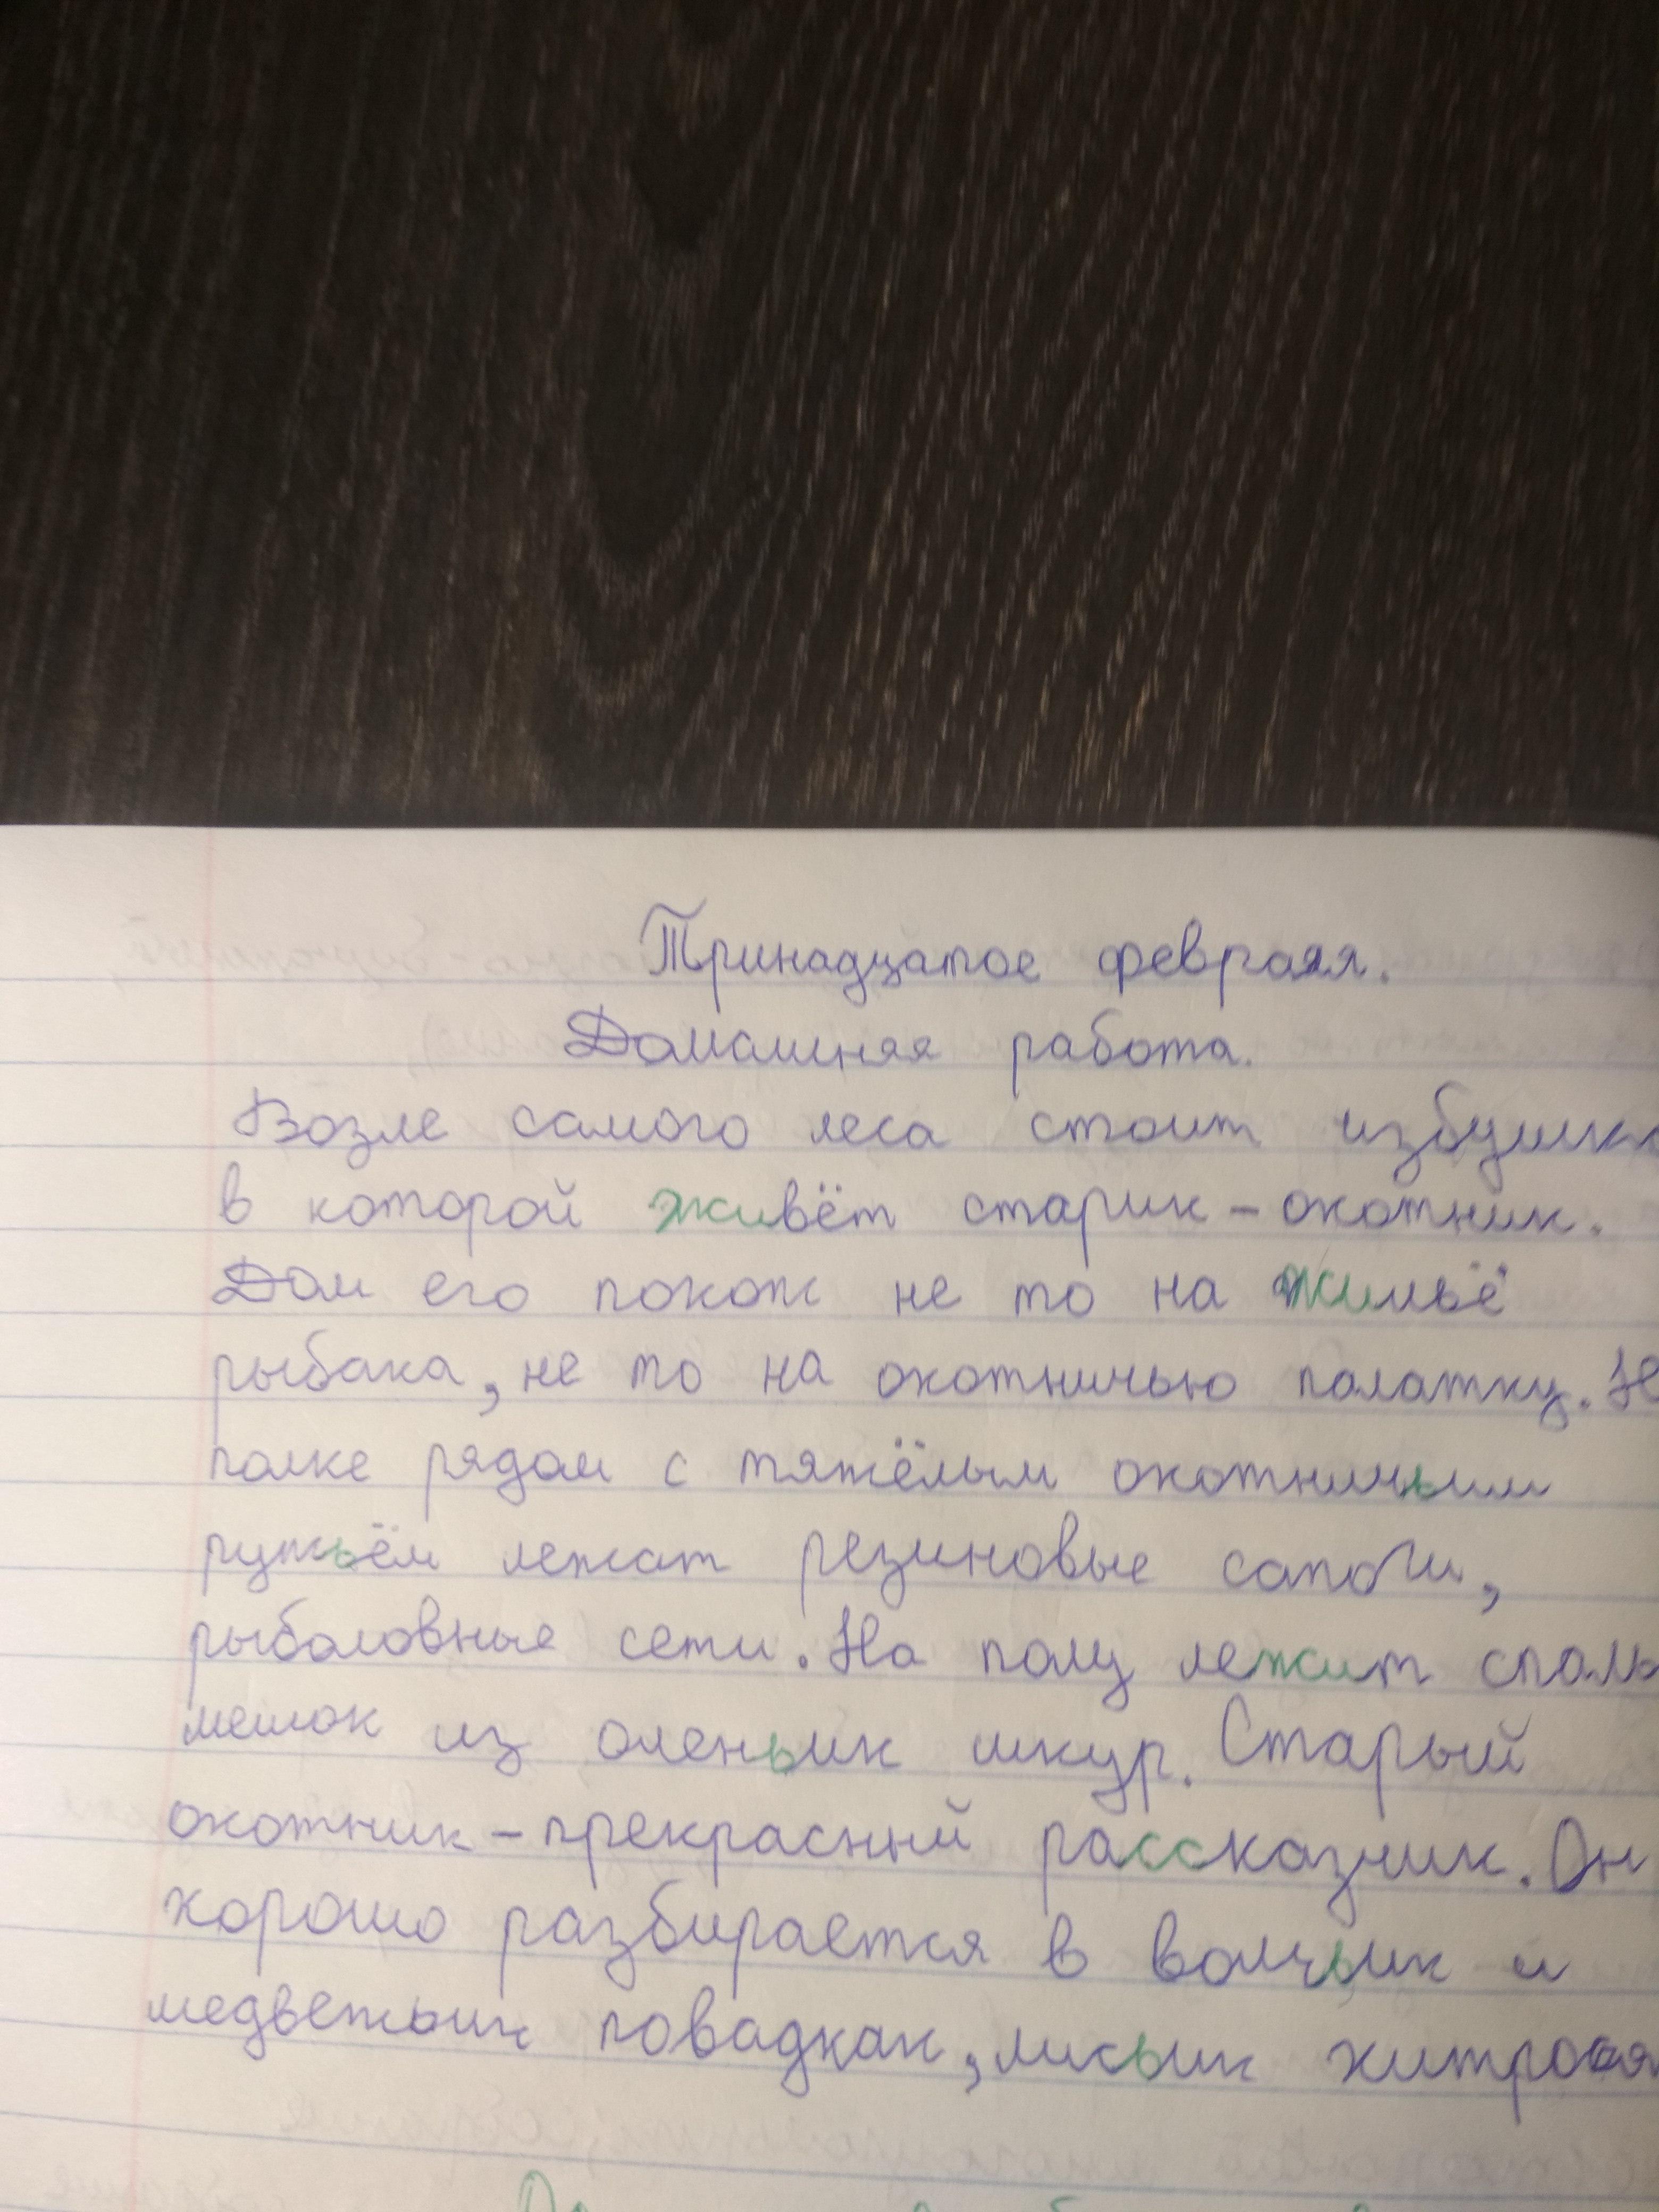 Тринадцатое февраля.
Домашняя работа.
Возле самого леса стоит избушк
в которой живёт старик-охотник.
Дом его похож не то на жильё
рыбака, не то на охотничью палатку. Н
полке рядом с тяжёлым охотничьим
ружьём лежат резиновые сапоги,
рыболовные сети. На полу лежит спаль
мешок из оленьих шкур. Старый
охотник-прекрасный рассказчик. Он
хорошо разбирается в волчьих и
медвежьих повадках, лисьих хитростя